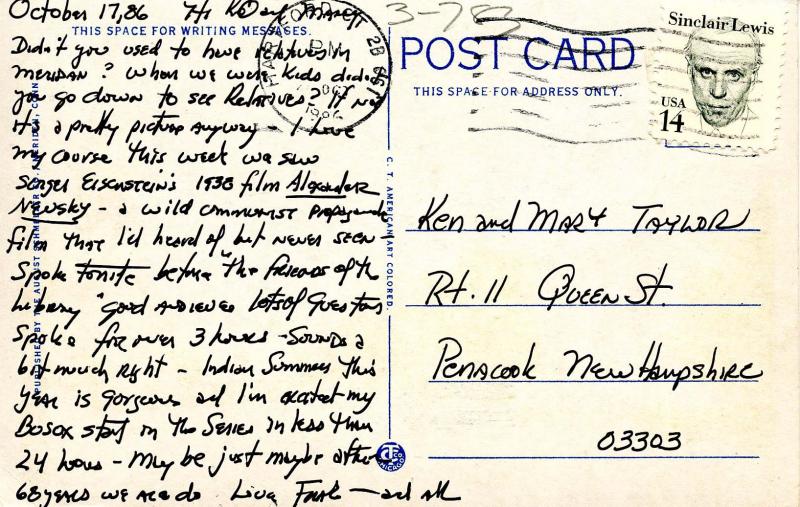 October 17, 86 Hi Ken and Mary
THIS SPACE FOR WRITING MESSAGES.
Didn't you used to have relatives in
Meridan? When we were kids didn't
you go down to see Relatives? If not
it's a pretty picture anyway - I love
my course this week we saw
Sergei Eisenstein's 1938 film Alexander
Nevsky - a wild communist propaganda
film that I'd heard of but never seen -
Spoke tonite before "the friends of the
library" good audience lots of questions
Spoke for over 3 hours - Sounds a
bit much right - Indian Summer this
year is gorgeous and I'm excited my
Bosox start in the Series in less than
24 hours - Maybe just maybe after
68 years we can do Love Frank - and all
PUBLISHED BY THE AUGUST SCHMELZER CO. MERIDEN, CONN.
C. T. AMERICAN ART COLORED.
CHICAGO
HARTFORD
PM
OCT
1986
3-783
POST CARD
THIS SPACE FOR ADDRESS ONLY.
Sinclair Lewis
USA
14
Ken and Mary Taylor
Rt. 11 Queen St.
Penacook New Hampshire
03303